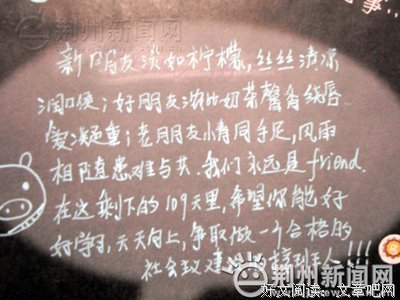 荆州新闻网
事…
新朋友淡如柠檬,丝丝清凉
润口侯;好朋友浓比奶茶馨香绕唇
爱凝重;老朋友情同手足,风雨
相随患难与共.我们永远是friend.
在这剩下的109天里,希望你能好
好学习,天天向上,争取做一个合格的
社会主义建 接班人!!!
荆州新闻网
好文阅读:文章吧网